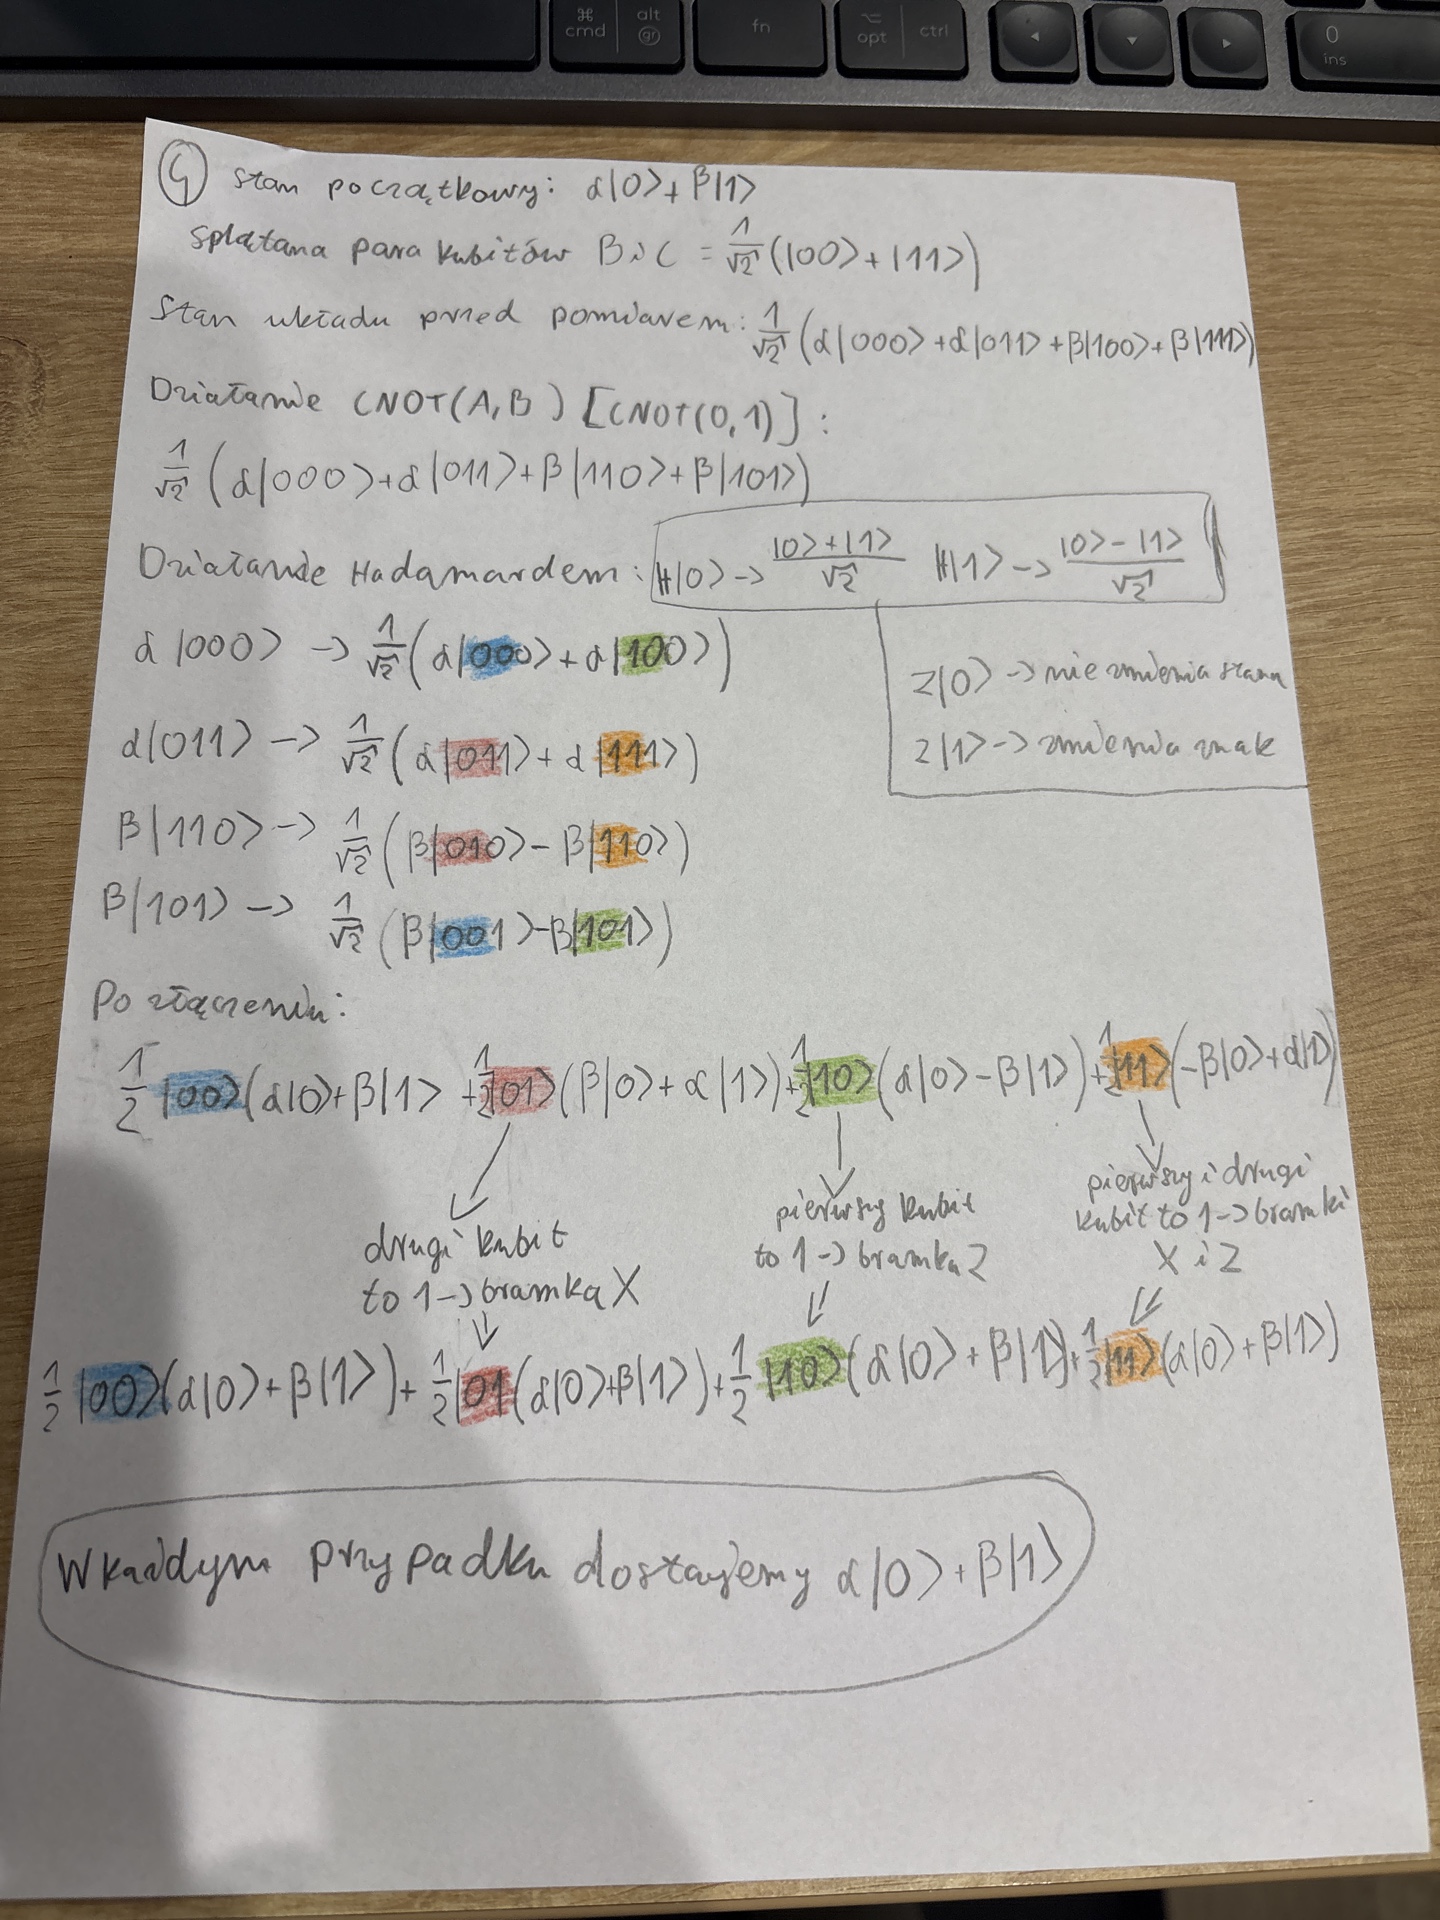 ⌘ cmd alt gr fn ⌥ opt ctrl 0 ins
④ stan początkowy: α|0> + β|1>
splątana para kubitów B i C = 1/√2 (|00> + |11>)
Stan układu przed pomiarem: 1/√2 (α|000> + α|011> + β|100> + β|111>)
Działanie CNOT(A,B) [CNOT(0,1)]:
1/√2 (α|000> + α|011> + β|110> + β|101>)
Działanie Hadamardem: H|0> -> |0>+|1>/√2 H|1> -> |0>-|1>/√2
α|000> -> 1/√2 (α|000> + α|100>)
z|0> -> nie zmienia stanu
α|011> -> 1/√2 (α|011> + α|111>)
z|1> -> zmienia znak
β|110> -> 1/√2 (β|010> - β|110>)
β|101> -> 1/√2 (β|001> - β|101>)
Po złączeniu:
1/2 |00>(α|0> + β|1> + 1/2|01>(β|0> + α|1>) + 1/2|10>(α|0> - β|1>) + 1/2|11>(-β|0> + α|1>)
drugi kubit
to 1 -> bramka X
pierwszy kubit
to 1 -> bramka Z
pierwszy i drugi
kubit to 1 -> bramki
X i Z
1/2 |00>(α|0> + β|1>) + 1/2|01(α|0> + β|1>) + 1/2|10>(α|0> + β|1>) + 1/2|11>(α|0> + β|1>)
W każdym przypadku dostajemy α|0> + β|1>